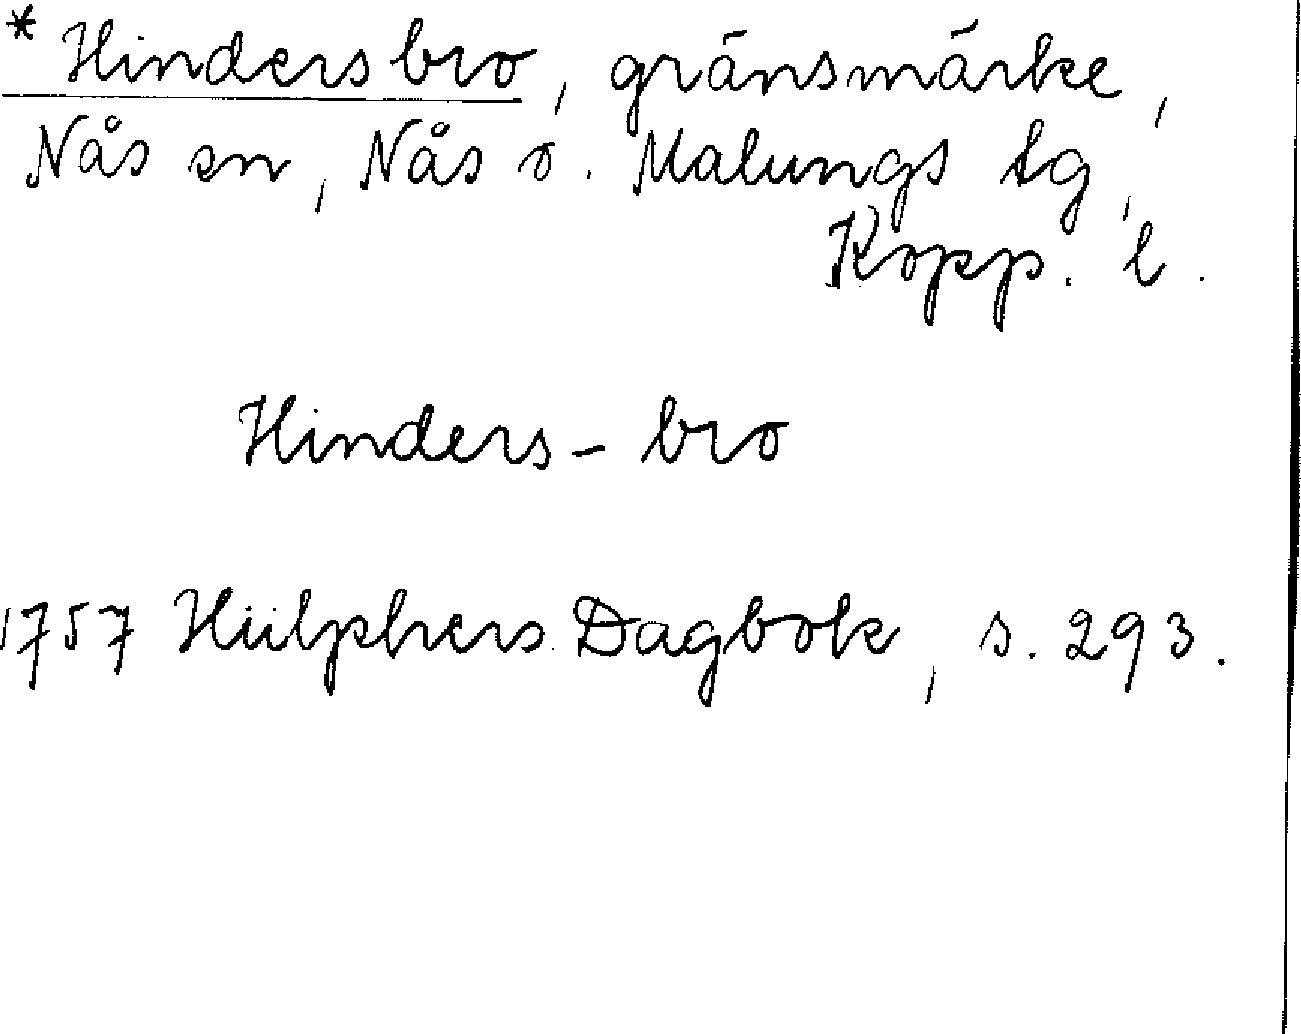 * Hindersbro, gränsmärke,
Nås sn, Nås o. Malungs tg,
Kopp. l.
Hinders-bro
1757 Hülphers Dagbok, s. 293.